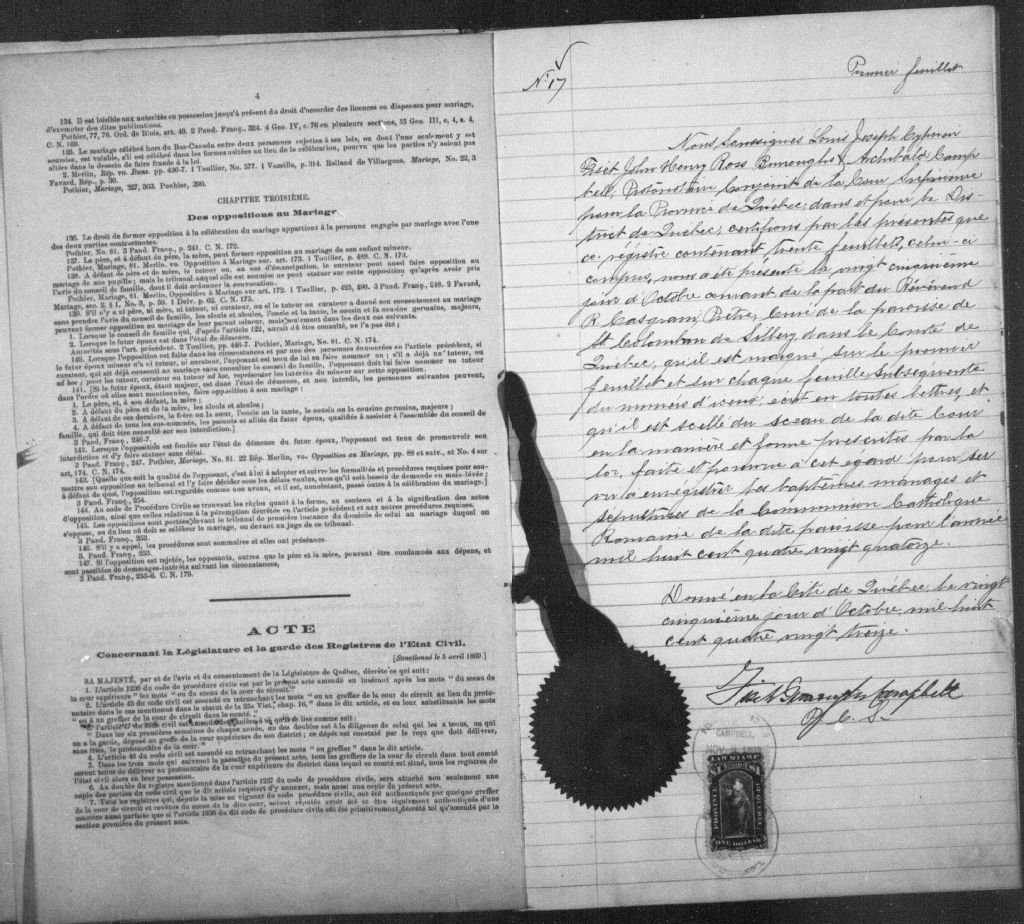 4
134. Il est loisible aux autorités en possession jusqu'à présent du droit d'accorder des licences ou dispenses pour mariage,
d'exempter des dites publications.
Pothier, 77, 78. Ord. de Blois, art. 40. 2 Pand. Franç., 324. 4 Geo. IV, c. 76 en plusieurs sections, 35 Geo. III, c. 4, s. 4,
C. N. 169.
135. Le mariage célébré hors du Bas-Canada entre deux personnes sujettes à ses lois, ou dont l'une seulement y est
soumise, est valable, s'il est célébré dans les formes usitées au lieu de la célébration, pourvu que les parties n'y soient pas
allées dans le dessein de faire fraude à la loi.
2. Merlin, Rép. vo. Bans. pp. 436-7. 1 Toullier, No. 577. 1 Vazeille, p. 314. Rolland de Villargues, Mariage, No. 22, 3
Favard, Rép., p. 30.
Pothier, Mariage, 327, 363. Pothier, 390.
CHAPITRE TROISIÈME.
Des oppositions au Mariage.
136. Le droit de former opposition à la célébration du mariage appartient à la personne engagée par mariage avec l'une
des deux parties contractantes.
Pothier, No. 81. 3 Pand. Franç., p. 241. C. N. 172.
137. Le père, et à défaut du père, la mère, peut former opposition au mariage de son enfant mineur.
Pothier, Mariage, 81. Merlin. vo. Opposition à Mariage sur. art. 173. 1 Toullier, p. 489. C. N. 173.
138. A défaut de père et de mère, le tuteur ou, au cas d'émancipation, le curateur peut aussi faire opposition au
mariage de son pupille; mais le tribunal auquel elle est soumise ne peut statuer sur cette opposition qu'après avoir pris
l'avis du conseil de famille, dont il doit ordonner la convocation.
Pothier, Mariage, 81. Merlin, Opposition à Mariage sur art. 172. 1 Toullier, p. 423, 490. 3 Pand. Franç., 248. 2 Favard,
Mariage, sec. 2, § 1, No. 3, p. 30. 1 Delv. p. 62. C. N. 175.
139. S'il n'y a ni père, ni mère, ni tuteur, ni curateur, ou si le tuteur ou curateur a donné son consentement au mariage
sans prendre l'avis du conseil de famille, les aïeuls et aïeules, l'oncle et la tante, le cousin et la cousine germains, majeurs,
peuvent former opposition au mariage de leur parent mineur, mais seulement dans les deux cas suivants.
1. Lorsque le conseil de famille qui, d'après l'article 122, aurait dû être consulté, ne l'a pas été;
2. Lorsque le futur époux est dans l'état de démence.
Autorités sous l'art. précédent. 2 Toullier, pp. 446-7. Pothier, Mariage, No. 81. C. N. 174.
140. Lorsque l'opposition est faite dans les circonstances et par une des personnes énumérées en l'article précédent, si
le futur époux mineur n'a ni tuteur, ni curateur, l'opposant est tenu de lui en faire nommer un; s'il a déjà un tuteur, ou
curateur, qui ait déjà consenti au mariage sans consulter le conseil de famille, l'opposant doit lui faire nommer un tuteur
ad hoc; pour les tuteur, curateur ou tuteur ad hoc, représenter les intérêts du mineur sur cette opposition.
141. [Si le futur époux, étant majeur, est dans l'état de démence, et non interdit, les personnes suivantes peuvent,
dans l'ordre où elles sont mentionnées, faire opposition à son mariage:
1. Le père, et, à son défaut, la mère;
2. A défaut du père et de la mère, les aïeuls et aïeules;
3. A défaut de ces derniers, le frère ou la sœur, l'oncle ou la tante, le cousin ou la cousine germains, majeurs;
4. A défaut de tous les sus-nommés, les parents et alliés du futur époux, qualifiés à assister à l'assemblée du conseil de
famille, qui doit être consulté sur son interdiction.]
3 Pand. Franç., 246-7.
142. Lorsque l'opposition est fondée sur l'état de démence du futur époux, l'opposant est tenu de promouvoir son
interdiction et d'y faire statuer sans délai.
3 Pand. Franç., 247. Pothier, Mariage, No. 81. 22 Rép. Merlin, vo. Opposition au Mariage, pp. 88 et suiv., et No. 4 sur
art, 174. C. N. 174.
143. [Quelle que soit la qualité de l'opposant, c'est à lui à adopter et suivre les formalités et procédures requises pour sou-
mettre son opposition au tribunal et l'y faire décider sous les délais voulus, sans qu'il soit besoin de demande en main-levée;
à défaut de quoi, l'opposition est regardée comme non avenu, et il est, nonobstant, passé outre à la célébration du mariage.]
3 Pand. Franç., 254.
144. Au code de Procédure Civile se trouvent les règles quant à la forme, au contenu et à la signification des actes
d'opposition, ainsi que celles relatives à la péremption décrétée en l'article précédent et aux autres procédures requises.
145. Les oppositions sont portées devant le tribunal de première instance du domicile de celui au mariage duquel on
s'oppose, ou du lieu où doit se célébrer le mariage, ou devant un juge de ce tribunal.
3 Pand. Franç., 253.
146. S'il y a appel, les procédures sont sommaires et elles ont préséance.
3. Pand. Franç., 253.
147. Si l'opposition est rejetée, les opposants, autres que le père et la mère, peuvent être condamnés aux dépens, et
sont passibles de dommages-intérêts suivant les circonstances,
3 Pand. Franç., 255-6. C. N. 179.
ACTE
Concernant la Législature et la garde des Registres de l'Etat Civil.
[Sanctionné le 5 avril 1869.]
SA MAJESTÉ, par et de l'avis et du consentement de la Législature de Québec, décrète ce qui suit:
1. L'article 1236 du code de procédure civile est par le présent acte amendé en insérant après les mots "du sceau de
la cour supérieure" les mots "ou du sceau de la cour de circuit."
2. L'article 45 du code civil est amendé en retranchant les mots "ou au greffier de la cour de circuit au lieu du proto-
notaire dans le cas mentionné dans le statut de la 25e Vict., chap. 16," dans le dit article, et en leur substituant les mots
"ou à un greffier de la cour de circuit dans le comté."
3. L'article 47 du code civil est amendé
"Dans les six premières semaines de chaque année, un des doubles est à la diligence de celui qui les a tenus, ou qui
en a la garde, déposé au greffe de la cour supérieure de son district; ce dépôt est constaté par le reçu que doit délivrer,
sans frais, le protonotaire de la cour."
4. L'article 48 du code civil est amendé en retranchant les mots "ou greffier" dans le dit article.
5. Dans les trois mois qui suivront la passation du présent acte, tous les greffiers de la cour de circuit dans tout comté
seront tenus de délivrer au protonotaire de la cour supérieure du district dans lequel tel comté est situé, tous les registres de
l'état civil alors en leur possession.
6. Au double du registre mentionné dans l'article 1237 du code de procédure civile, sera attaché non seulement une
copie des parties du code civil que le dit article requiert d'y annexer, mais aussi une copie du présent acte.
7. Tous les registres qui, depuis la mise en vigueur du code de procédure civile, ont été authentiqués par quelque greffier
de la cour de circuit et revêtus du sceau de la dite cour, seront réputés avoir été et être légalement authentiqués d'une
manière aussi parfaite que si l'article 1236 du dit code de procédure civile eût été primitivement décrété tel qu'amendé par la
section première du présent acte.
No. 17
Premier feuillet
Nous Soussignés Louis Joseph Cyprien
Fiset, John Henry Ross Burroughs & Archibald Camp-
bell, Protonotaire Conjoint de la Cour Supérieure
pour la Province de Québec, dans et pour le Dis-
trict de Québec, certifions par les présentes que
ce régistre contenant trente feuillets, celui-ci
compris, nous a été présenté le vingt cinquième
jour d'Octobre courant de la part du Révérend
R. Casgrain, Prêtre, Curé de la paroisse de
St. Colomban de Sillery dans le Comté de
Québec, qu'il est marqué sur le premier
feuillet et sur chaque feuille subséquente
du numéro d'iceux, écrit en toutes lettres, et
qu'il est scellé du sceau de la dite Cour
en la manière et forme prescrites par la
loi, faite et pourvue à cet égard pour ser-
vir à enrégistrer les baptêmes mariages et
sépultures de la Communion Catholique
Romaine de la dite paroisse pour l'année
mil huit cent quatre vingt quatorze.
Donné en la Cité de Québec, le vingt
cinquième jour d'Octobre, mil huit
cent quatre vingt treize.
Fiset Burroughs Campbell
P. C. S.
CAMPBELL
LAW STAMP
PROVINCE
OF QUEBEC
ONE DOLLAR